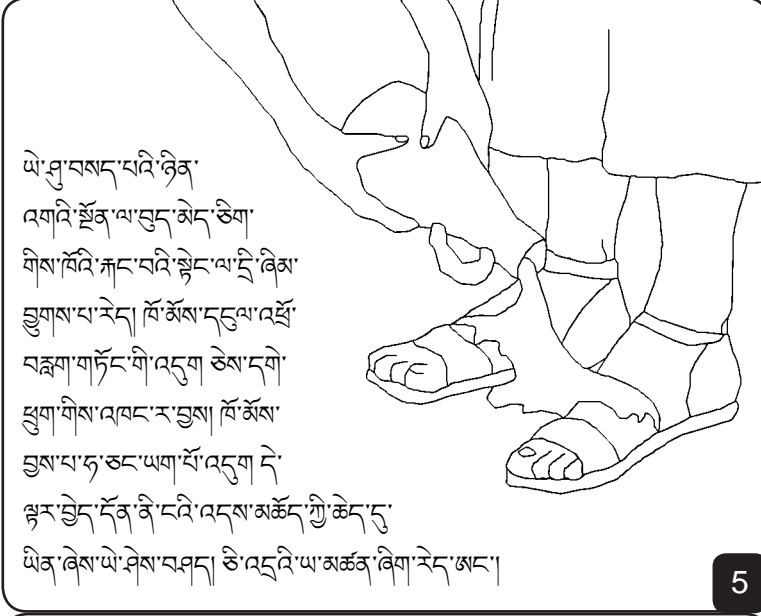 ཡེ་ཤུ་བསད་པའི་ཉིན་
འགའི་སྔོན་ལ་བུད་མེད་ཅིག་
གིས་ཁོའི་རྐང་བའི་སྟེང་ལ་དྲི་ཞིམ་
བྱུགས་པ་རེད། ཁོ་མོས་དངུལ་འཕྲོ་
བརླག་གཏོང་གི་འདུག ཅེས་དགེ་
ཕྲུག་གིས་འཁང་ར་བྱས། ཁོ་མོས་
བྱས་པ་ཧ་ཅང་ཡག་པོ་འདུག དེ་
ལྟར་བྱེད་དོན་ནི་ངའི་འདས་མཆོད་ཀྱི་ཆེད་དུ་
ཡིན་ཞེས་ཡེ་ཤེས་བཤད། ཅི་འདྲའི་ཡ་མཚན་ཞིག་རེད་ཨང་།
5